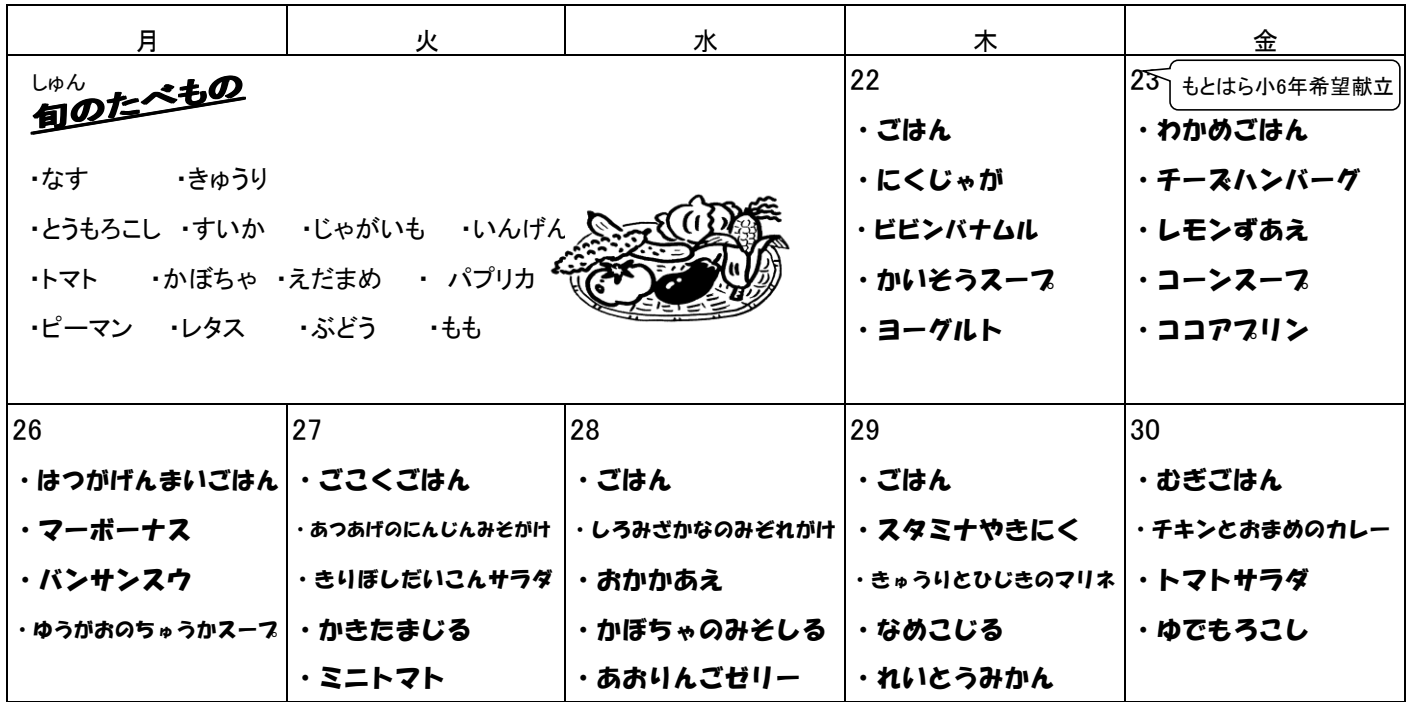 月 火 水 木 金
しゅん
旬のたべもの
・なす ・きゅうり
・とうもろこし ・すいか ・じゃがいも ・いんげん
・トマト ・かぼちゃ ・えだまめ ・ パプリカ
・ピーマン ・レタス ・ぶどう ・もも
22
・ごはん
・にくじゃが
・ビビンバナムル
・かいそうスープ
・ヨーグルト
23
もとはら小6年希望献立
・わかめごはん
・チーズハンバーグ
・レモンずあえ
・コーンスープ
・ココアプリン
26
・はつがげんまいごはん
・マーボーナス
・バンサンスウ
・ゆうがおのちゅうかスープ
27
・ごこくごはん
・あつあげのにんじんみそがけ
・きりぼしだいこんサラダ
・かきたまじる
・ミニトマト
28
・ごはん
・しろみざかなのみぞれがけ
・おかかあえ
・かぼちゃのみそしる
・あおりんごゼリー
29
・ごはん
・スタミナやきにく
・きゅうりとひじきのマリネ
・なめこじる
・れいとうみかん
30
・むぎごはん
・チキンとおまめのカレー
・トマトサラダ
・ゆでもろこし